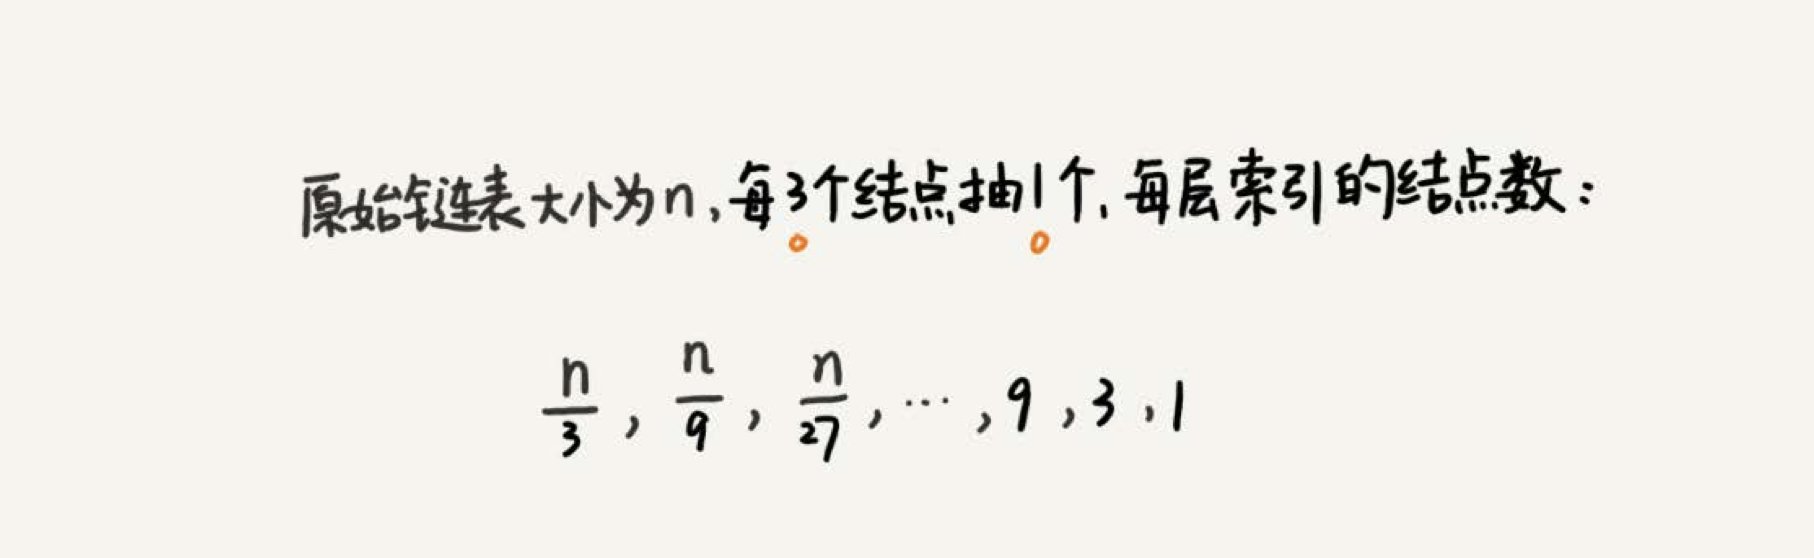 原始链表大小为n,每3个结点抽1个,每层索引的结点数:
n/3, n/9, n/27, …, 9, 3, 1